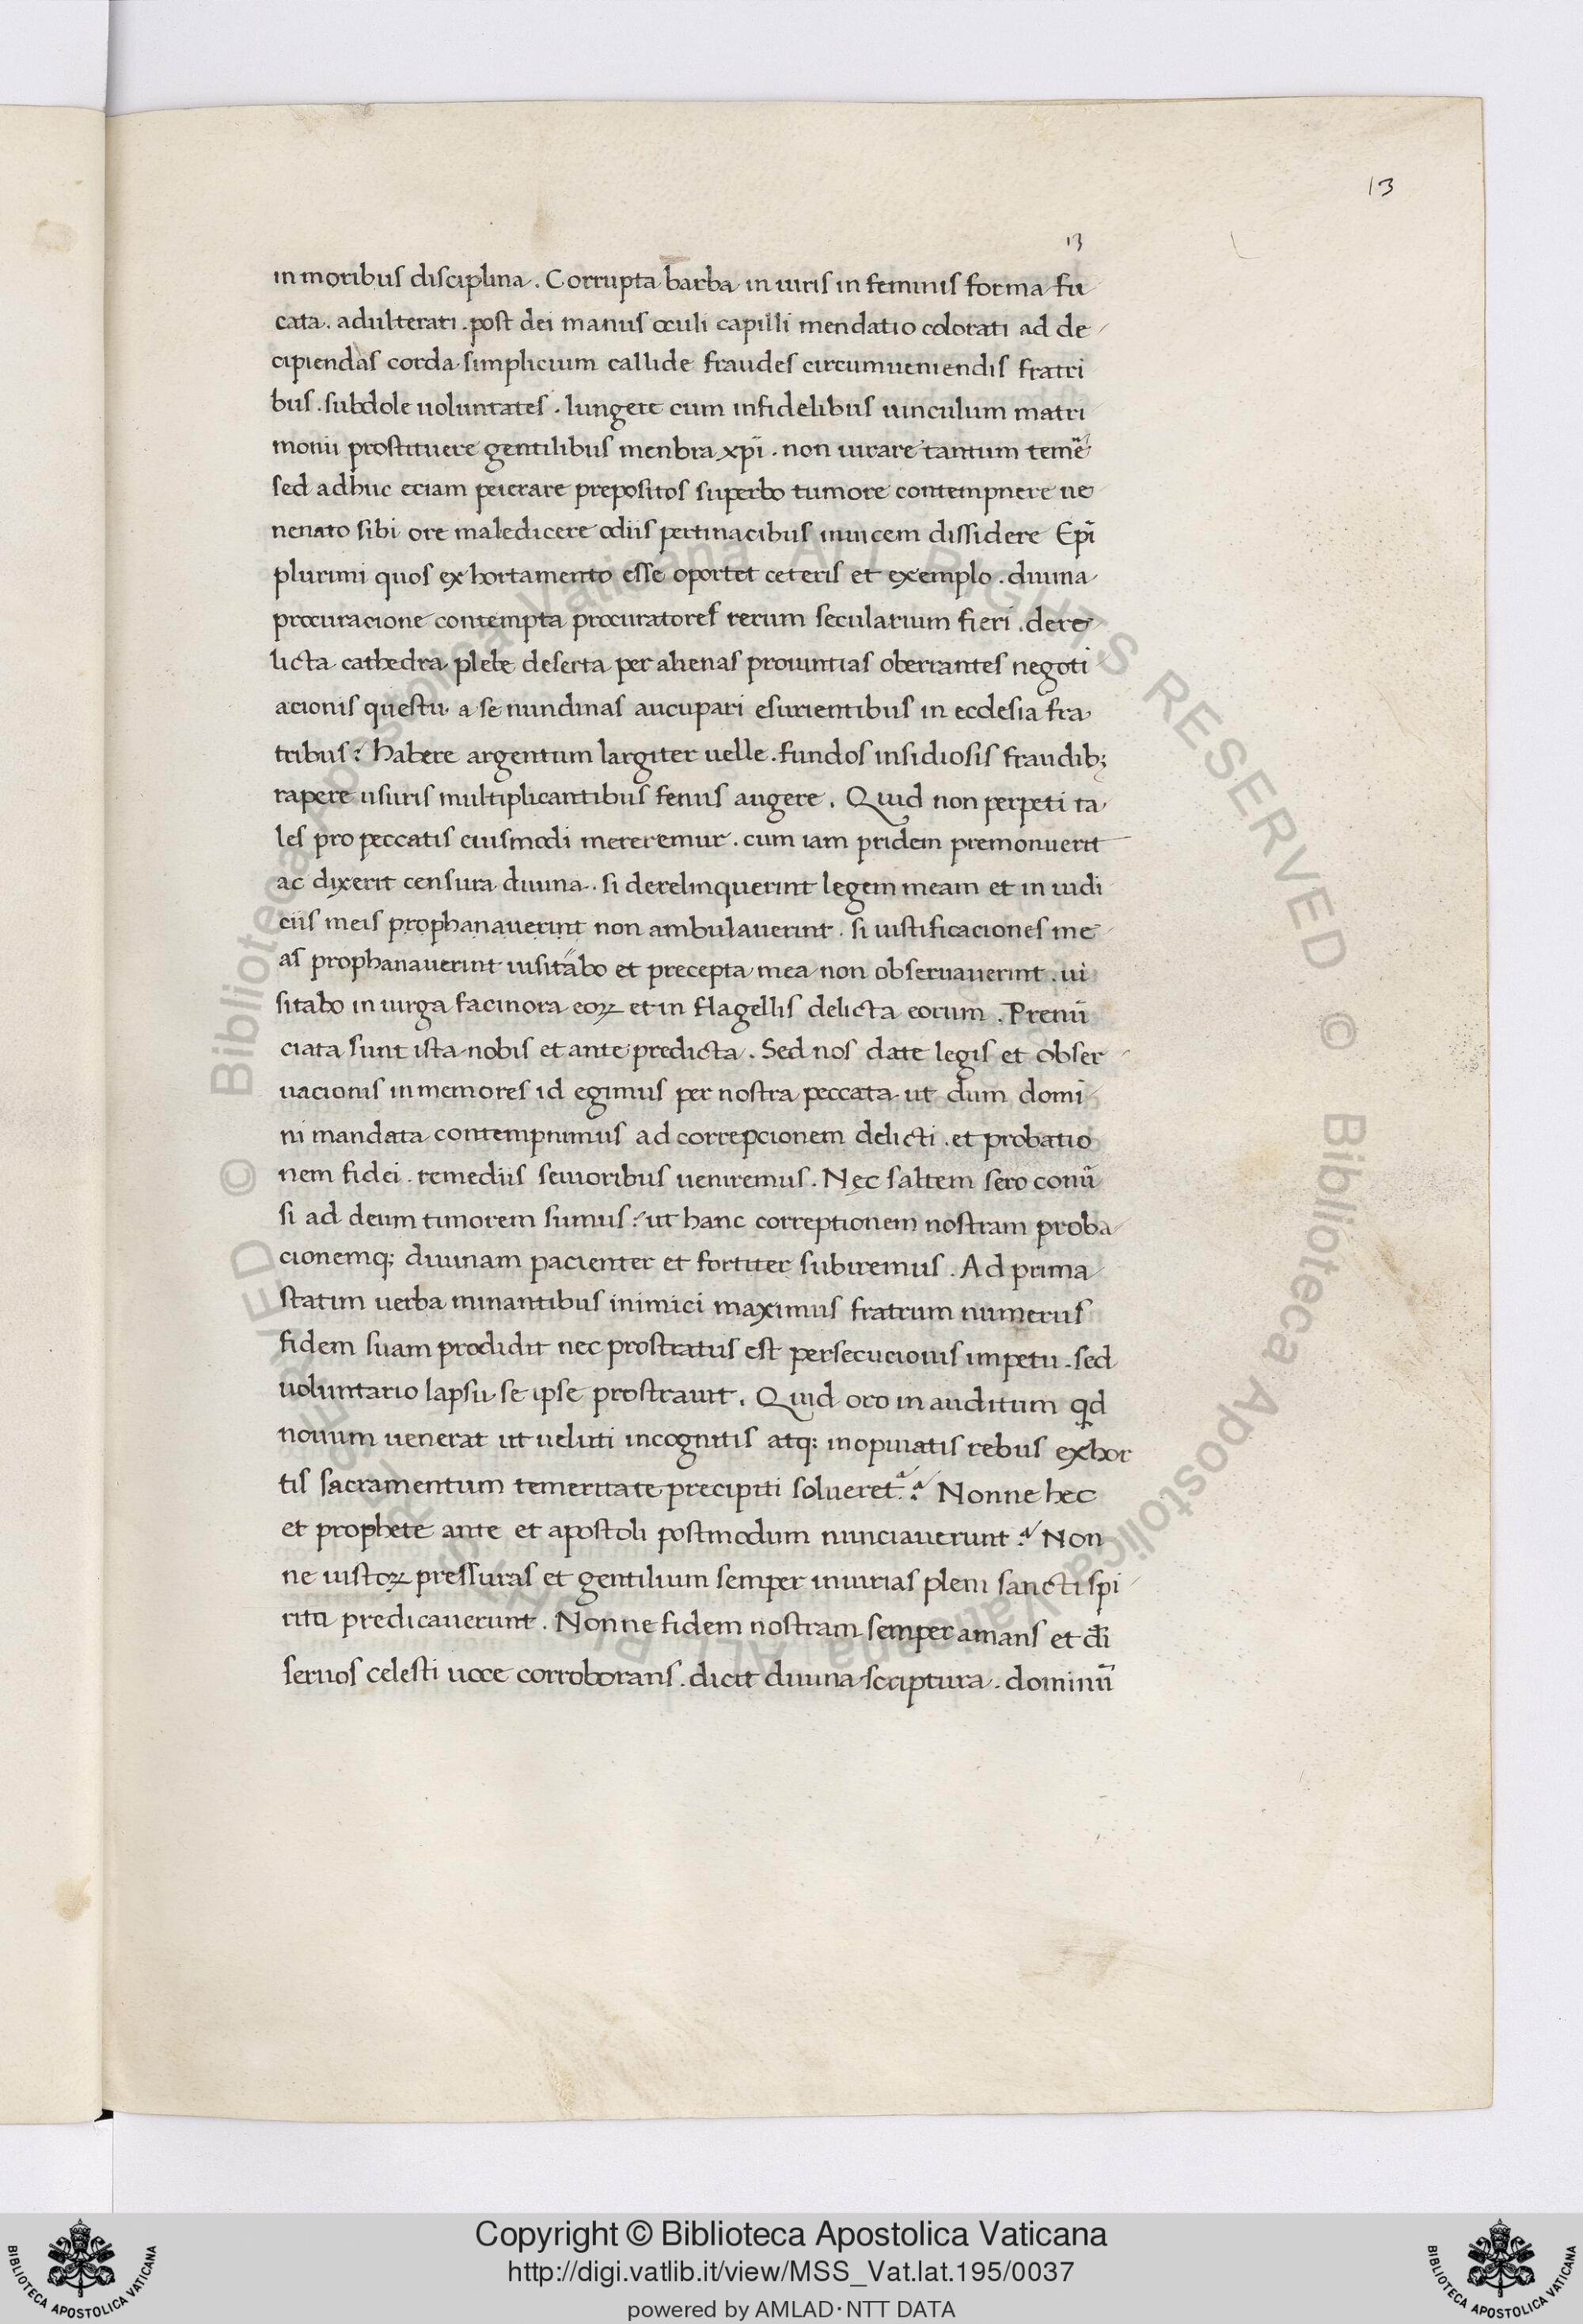 13
13
in moribus disciplina. Corrupta barba in uiris in feminis forma fu
cata. adulterati. post dei manus oculi capilli mendatio colorati ad de
cipiendas corda simplicium callide fraudes circumueniendis fratri
bus. subdole uoluntates. Iungere cum infidelibus uinculum matri
monii prostituere gentilibus menbra xp̄i. non iurare tantum teme᷑
sed adhuc eciam peierare prepositos superbo tumore contempnere ue
nenato sibi ore maledicere odiis pertinacibus inuicem dissidere Ep̄i
plurimi quos exhortamento esse oportet ceteris et exemplo. diuina
procuracione contempta procuratores rerum secularium fieri. dere
licta cathedra plebe deserta per alienas prouintias oberrantes negoti
acionis questu a se nundinas aucupari esurientibus in ecclesia fra
tribus? habere argentum largiter uelle. fundos insidiosis fraudib;
rapere usuris multiplicantibus fenus augere. Quid non perpeti ta
les pro peccatis eiusmodi mereremur. cum iam pridem premonuerit
ac dixerit censura diuina. si derelinquerint legem meam et in iudi
ciis meis prophanauerint non ambulauerint. si iustificaciones me
as prophanauerint uisitabo et precepta mea non obseruauerint. ui
sitabo in uirga facinora eoꝝ et in flagellis delicta eorum. Prenū
ciata sunt ista nobis et ante predicta. Sed nos date legis et obser
uacionis inmemores id egimus per nostra peccata ut dum domi
ni mandata contempnimus ad correpcionem delicti. et probatio
nem fidei. remediis seuioribus ueniremus. Nec saltem sero conū
si ad deum timorem sumus? ut hanc correptionem nostram proba
cionemq; diuinam pacienter et fortiter subiremus. Ad prima
statim uerba minantibus inimici maximus fratrum numerus
fidem suam prodidit nec prostratus est persecucionis impetu. sed
uoluntario lapsu se ipse prostrauit. Quid oro in auditum qd
nouum uenerat ut ueluti incognitis atq; inopinatis rebus exhor
tis sacramentum temeritate precipiti solueret? Nonne hec
et prophete ante et apostoli postmodum nunciauerunt? Non
ne iustoꝝ pressuras et gentilium semper iniurias pleni sancti spi
ritu predicauerunt. Nonne fidem nostram semper amans et dī
seruos celesti uoce corroborans. dicit diuina scriptura. dominū
© Biblioteca Apostolica Vaticana ALL RIGHTS RESERVED © Biblioteca Apostolica Vaticana ALL RIGHTS RESERVED
Copyright © Biblioteca Apostolica Vaticana
http://digi.vatlib.it/view/MSS_Vat.lat.195/0037
powered by AMLAD·NTT DATA
BIBLIOTECA APOSTOLICA VATICANA
BIBLIOTECA APOSTOLICA VATICANA